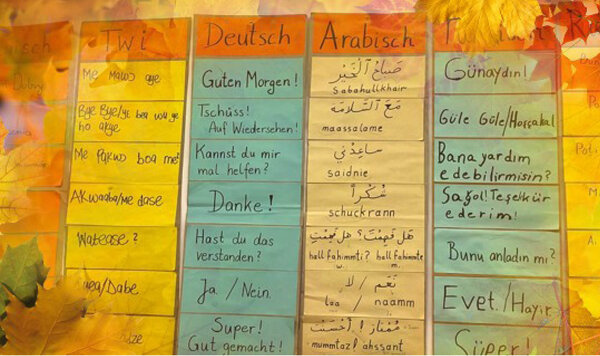 Twi
Me mawo aye
Bye Bye/ye
Me
boa me
Akwaaba/me dase
Watease?
/Dabe
Deutsch
Guten Morgen!
Tschüss!
Auf Wiedersehen!
Kannst du mir
mal helfen?
Danke!
Hast du das
verstanden?
Ja / Nein
Super!
Gut gemacht!
Arabisch
صَبَاحُ الْخَيْر
Sabahulkhair
مَعَ السَّلَامَة
maassalame
سَاعِدْنِي
saidnie
شُكْراً
schuckrann
هَل فَهِمْتَ؟ هَل فَهِمْتِ
hall fahimmti? hall fahimmt
نَعَم / لا
laa / naamm
مُمْتَاز! أَحْسَنْت
mummtaz! ahssant
Günaydın!
Güle Güle/Hoşçakal
Bana yardım
edebilirmisin?
Sağol! Teşekkür
ederim!
Bunu anladın mı?
Evet./Hayır
Süper!